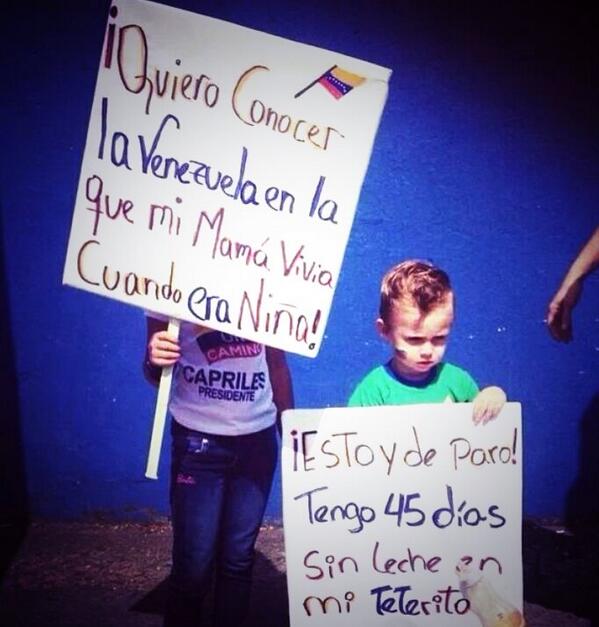 ¡Quiero Conocer
la Venezuela en la
que mi Mamá Vivia
Cuando era Niña!
CAMINO
CAPRILES
PRESIDENTE
¡ESTOY de Paro!
Tengo 45 días
Sin Leche en
mi TeTerito